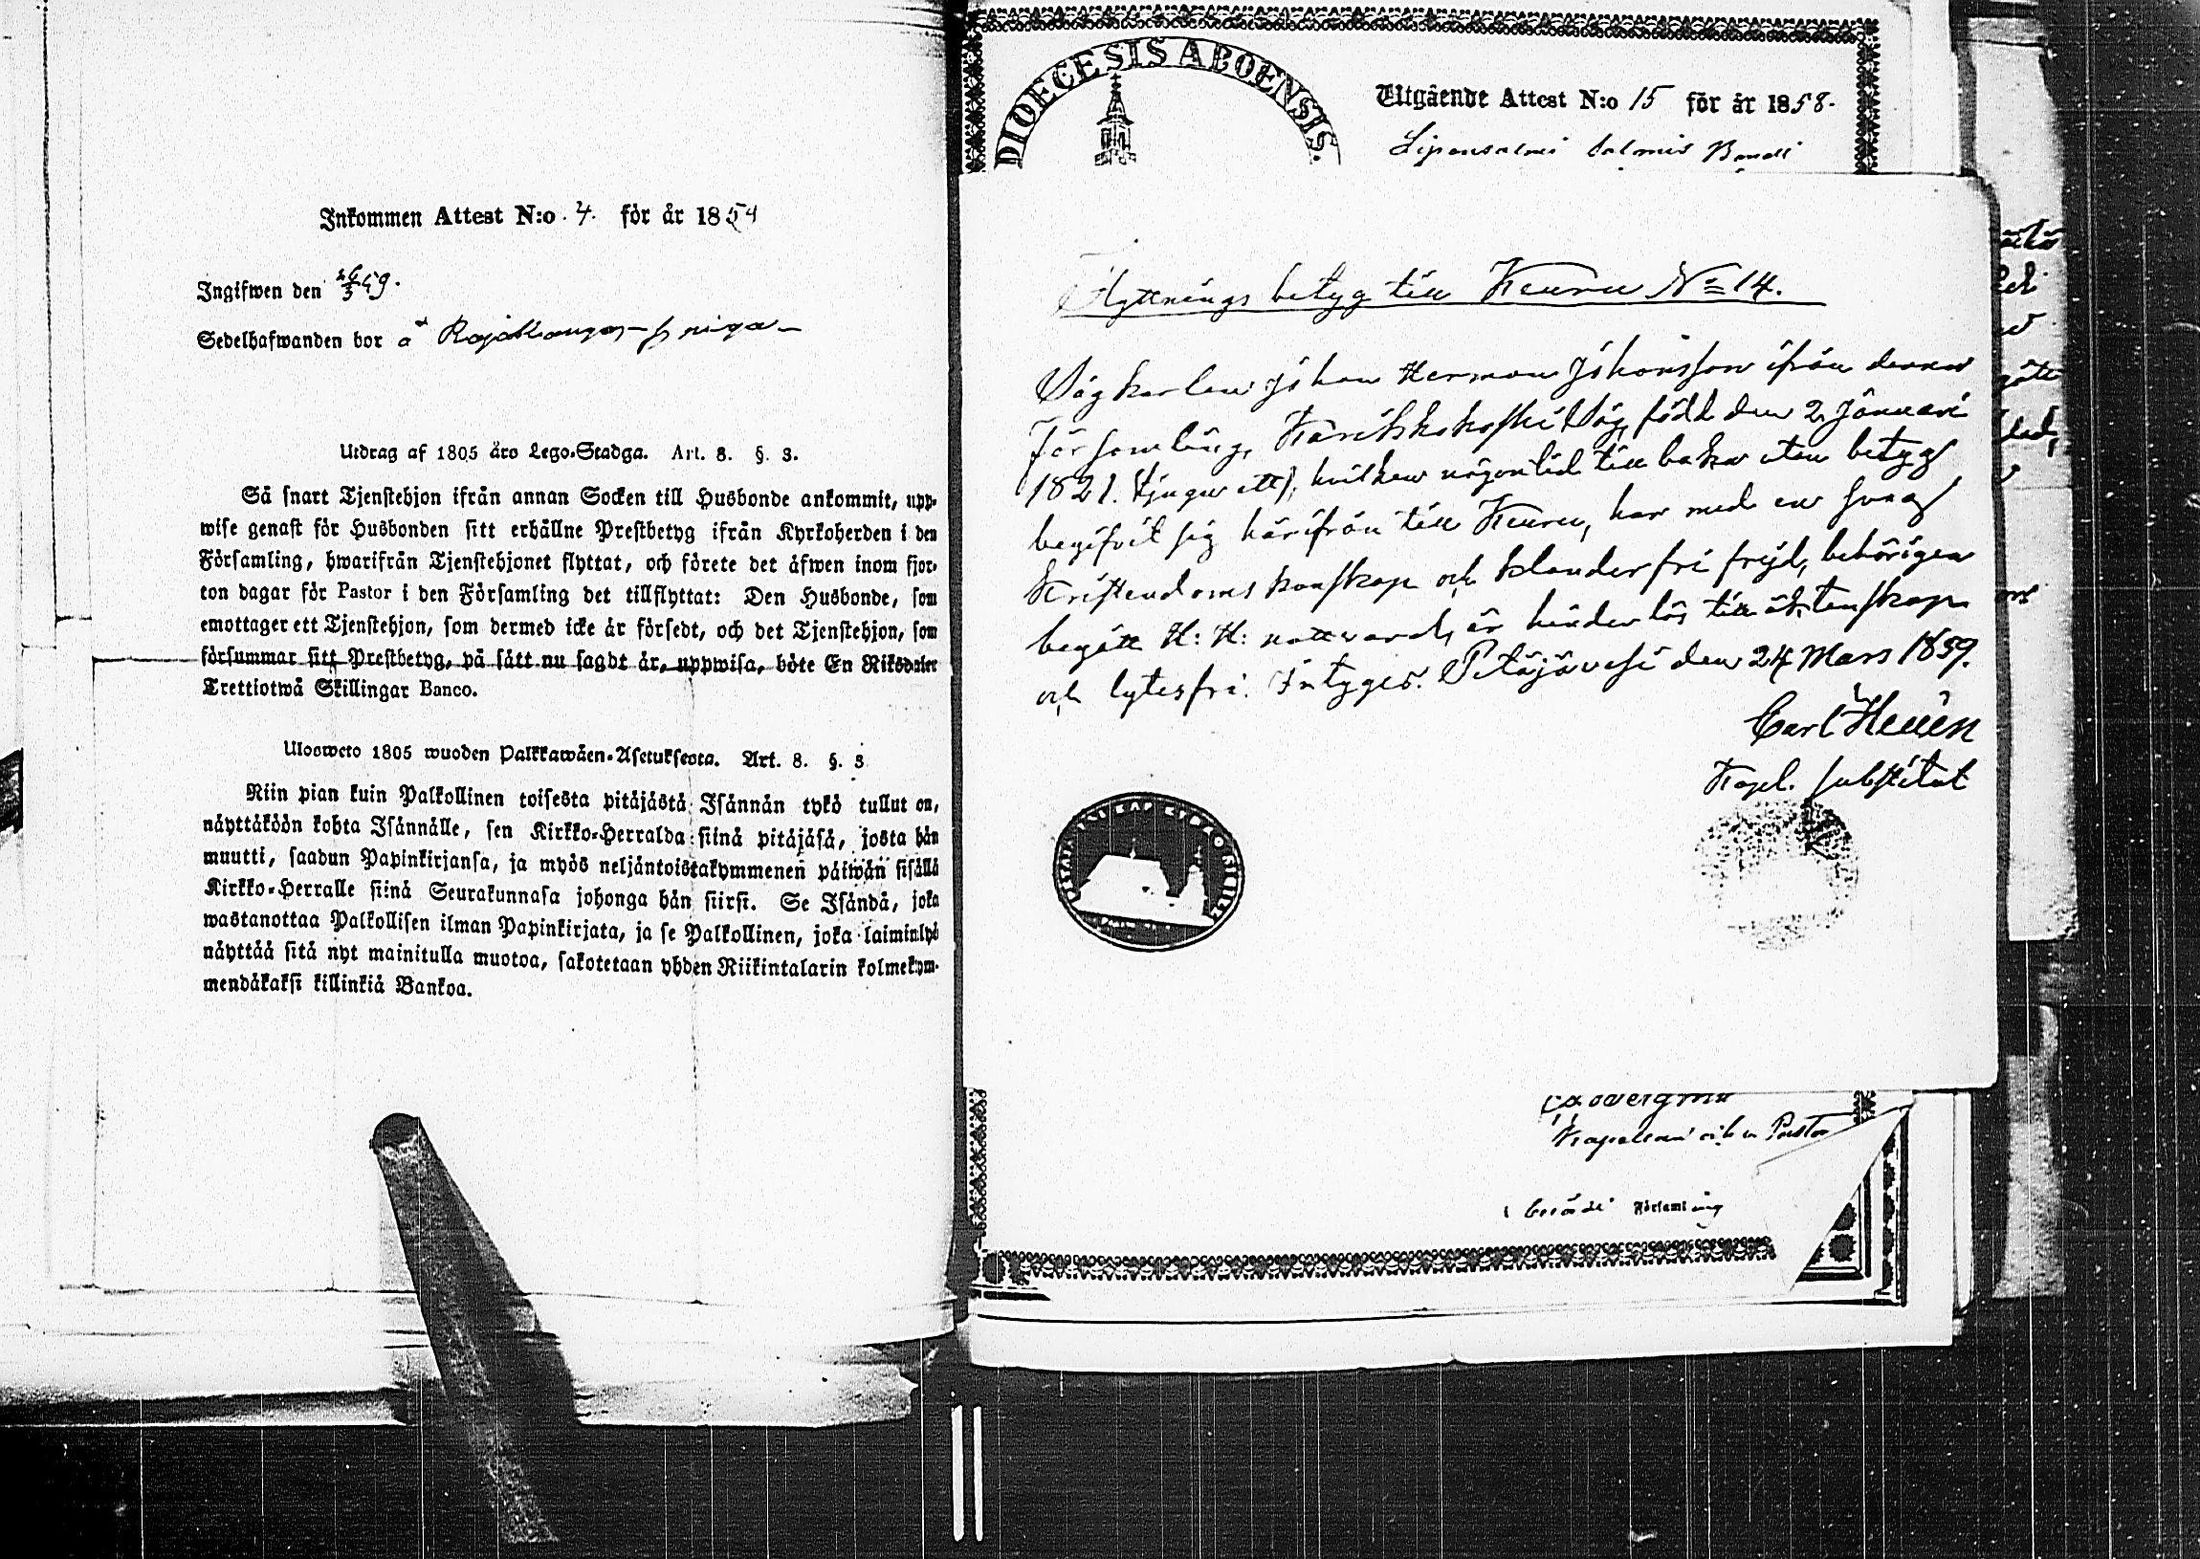 Inkommen Attest N:o 4. för år 1859
Ingifwen den 26/3 59.
Sedelhafwanden bor å
Utdrag af 1805 års Lego-Stadga. Art. 8. §. 3.
Så snart Tjenstehjon ifrån annan Socken till Husbonde ankommit, upp-
wise genast för Husbonden sitt erhållne Prestbetyg ifrån Kyrkoherden i den
Församling, hwarifrån Tjenstehjonet flyttat, och förete det äfwen inom fjor-
ton dagar för Pastor i den Församling det tillflyttat: Den Husbonde, som
emottager ett Tjenstehjon, som dermed icke är försedt, och det Tjenstehjon, som
försummar sitt Prestbetyg, på sätt nu sagdt är, uppwisa, böte En Riksdaler
Trettiotwå Skillingar Banco.
Ulosweto 1805 wuoden Palkkawäen-Asetuksesta. Art. 8. §. 3
Niin pian kuin Palkollinen toisesta pitäjästä Isännän tykö tullut on,
näyttäköön kohta Isännälle, sen Kirkko-Herralda siinä pitäjäsä, josta hän
muutti, saadun Papinkirjansa, ja myös neljäntoistakymmenen päiwän sisällä
Kirkko-Herralle siinä Seurakunnasa johonga hän siirsi. Se Isändä, joka
wastanottaa Palkollisen ilman Papinkirjata, ja se Palkollinen, joka laiminlyö
näyttää sitä nyt mainitulla muotoa, sakotetaan yhden Riikintalarin kolmekym-
mendäkaksi killinkiä Bankoa.
DIOECESIS ABOENSIS.
Utgående Attest N:o 15 för år 1858.
Flyttnings betyg till Keuru No 14.
Sågkarlen Johan Herman Johansson ifrån denna
Församling, Såg, född den 2 Januari
1821. tjugu ett), hvilken någon tid tillbaka utan betyg
begifvit sig härifrån till Keuru, har med en svag
Kristendoms kunskap och klanderfri frejd, behörigen
begått H: H: nattvard, är hinderlös till äktenskap
och lytesfri. Intygas. Petäjävesi den 24 Mars 1859.
Carl
Kapl. substitut
Kapellan och v. Pastor
i Församling